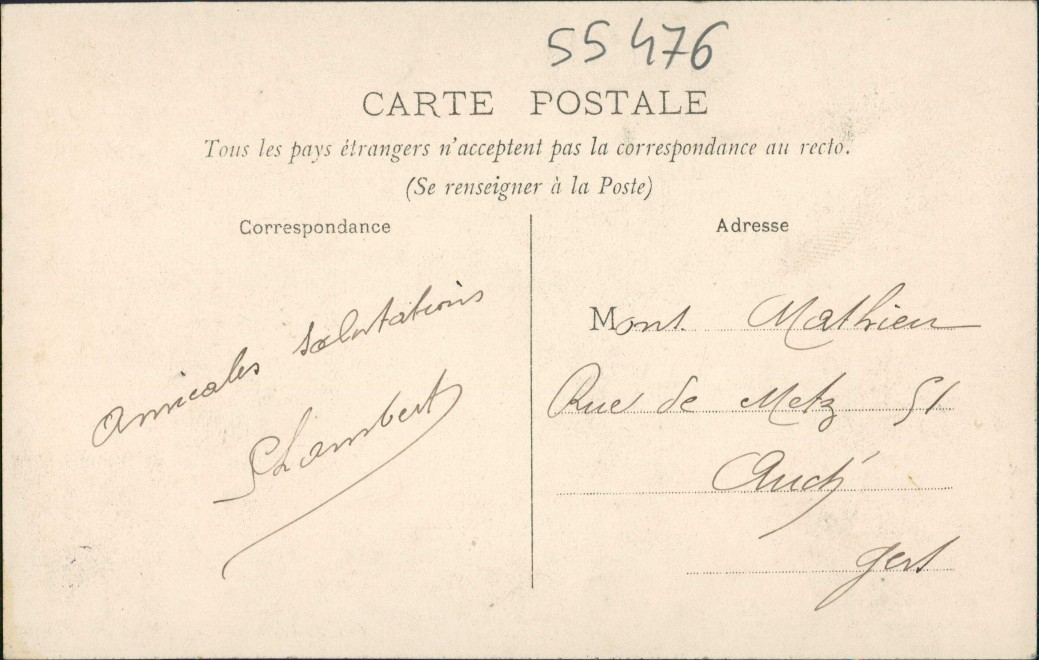 55 476
CARTE POSTALE
Tous les pays étrangers n'acceptent pas la correspondance au recto.
(Se renseigner à la Poste)
Correspondance
amicales salutations
Adresse
Mons. Mathieu
Rue de Metz 51
Auch
Gers